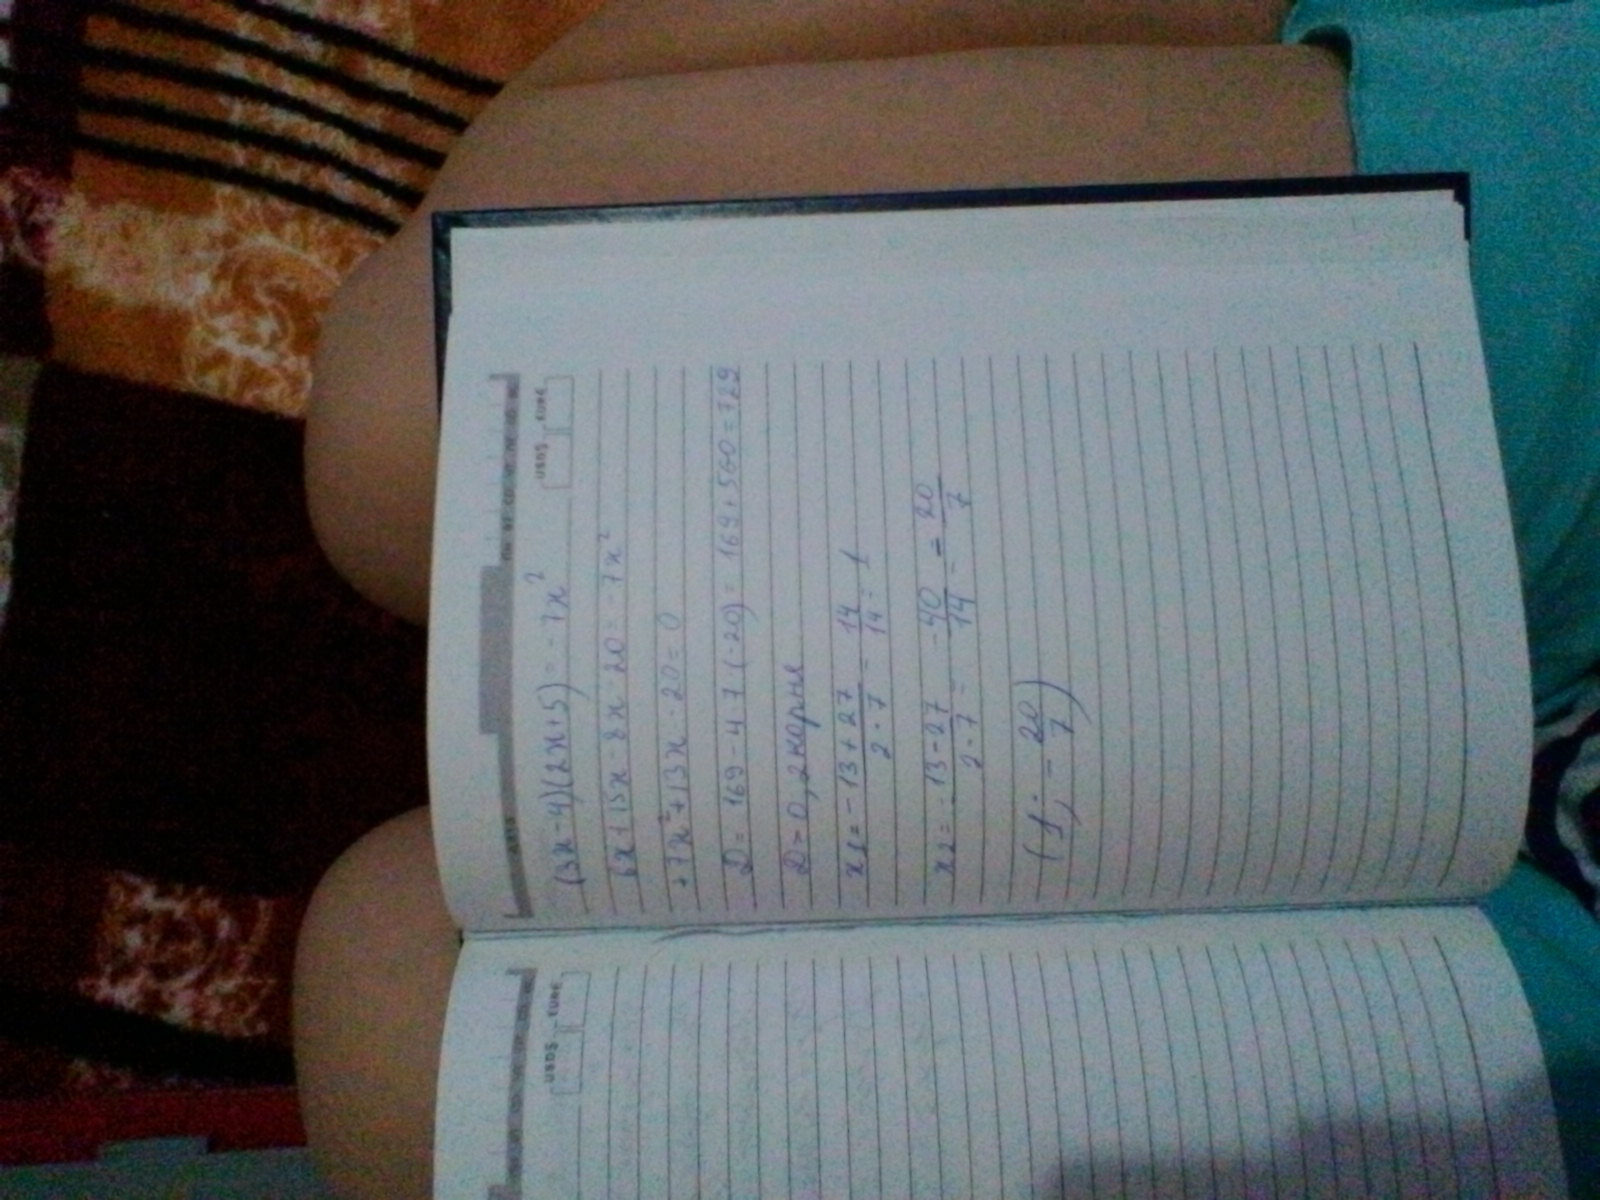 USD$ EURE
(3x-4)(2x+5)=-7x²
6x+15x-8x-20=-7x²
+7x²+13x-20=0
D=169-4·7·(-20)=169+560=729
D>0, 2 корня
x₁=-13+27/2·7=14/14=1
x₂=-13-27/2·7=-40/14=-20/7
(1;-20/7)
USD$ EURE